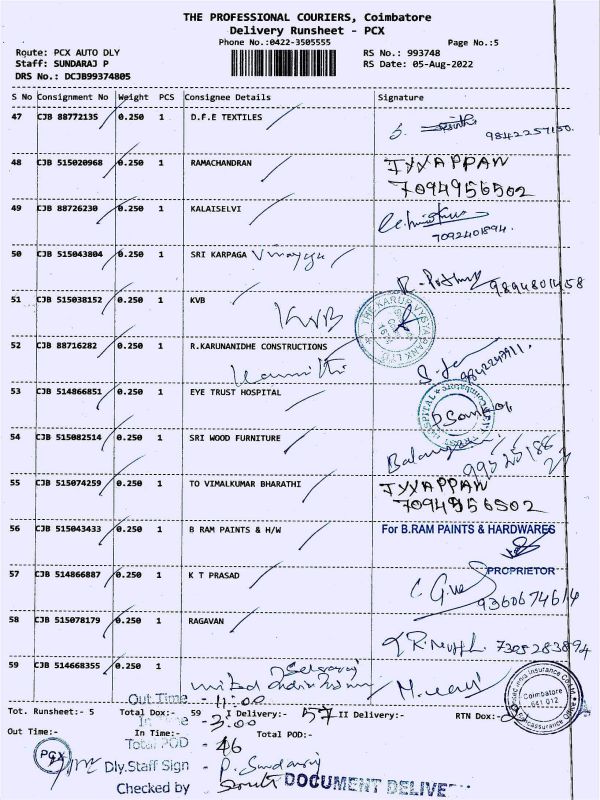 THE PROFESSIONAL COURIERS, Coimbatore
Delivery Runsheet - PCX
Phone No.:0422-3505555 Page No.:5
Route: PCX AUTO DLY RS No.: 993748
Staff: SUNDARAJ P RS Date: 05-Aug-2022
DRS No.: DCJB99374805
S No Consignment No Weight PCS Consignee Details Signature
47 CJB 88772135 0.250 1 D.F.E TEXTILES
9842257150.
48 CJB 515020968 0.250 1 RAMACHANDRAN IYYAPPAN
7094956502
49 CJB 88726230 0.250 1 KALAISELVI
7092401894.
50 CJB 515043804 0.250 1 SRI KARPAGA Vinayaga
9894801458
51 CJB 515038152 0.250 1 KVB
KVB
THE KARUR VYSYA BANK LTD
52 CJB 88716282 0.250 1 R.KARUNANIDHE CONSTRUCTIONS
53 CJB 514866851 0.250 1 EYE TRUST HOSPITAL
HOSPITAL
54 CJB 515082514 0.250 1 SRI WOOD FURNITURE
55 CJB 515074259 0.250 1 TO VIMALKUMAR BHARATHI IYYAPPAN
7094956502
56 CJB 515043433 0.250 1 B RAM PAINTS & H/W For B.RAM PAINTS & HARDWARES
PROPRIETOR
57 CJB 514866887 0.250 1 K T PRASAD
9360674614
58 CJB 515078179 0.250 1 RAGAVAN
7305283894
59 CJB 514668355 0.250 1
Selvaraj
Coimbatore
641 012
Out Time 11:00
Tot. Runsheet:- 5 Total Dox:- 59 I Delivery:- 57 II Delivery:- RTN Dox:-
In Time 3.00
Out Time:- In Time:- Total POD:-
Total POD - 46
PCX
Dly.Staff Sign - P. Sundaraj
Checked by DOCUMENT DELIVE